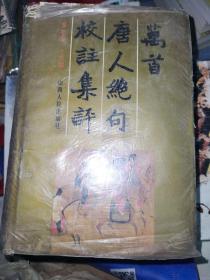 萬首
唐人絕句
校註集評
山西人民出版社